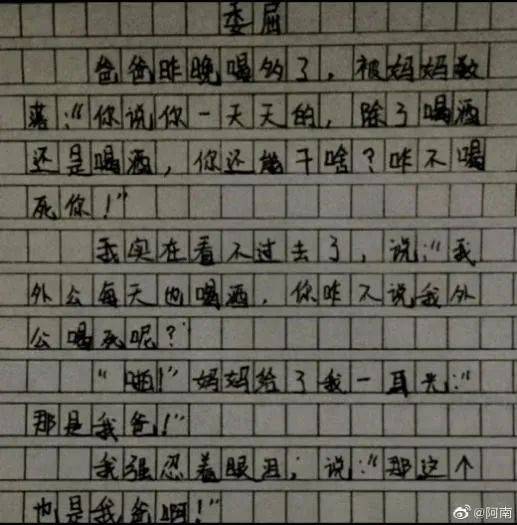 委屈
爸爸昨晚喝多了，被妈妈数
落：“你说你一天天的，除了喝酒
还是喝酒，你还能干啥？咋不喝
死你！”
我实在看不过去了，说：“我
外公每天也喝酒，你咋不说我外
公喝死呢？”
“啪！”妈妈给了我一耳光：“
那是我爸！”
我强忍着眼泪，说：“那这个
也是我爸啊！”
@阿南